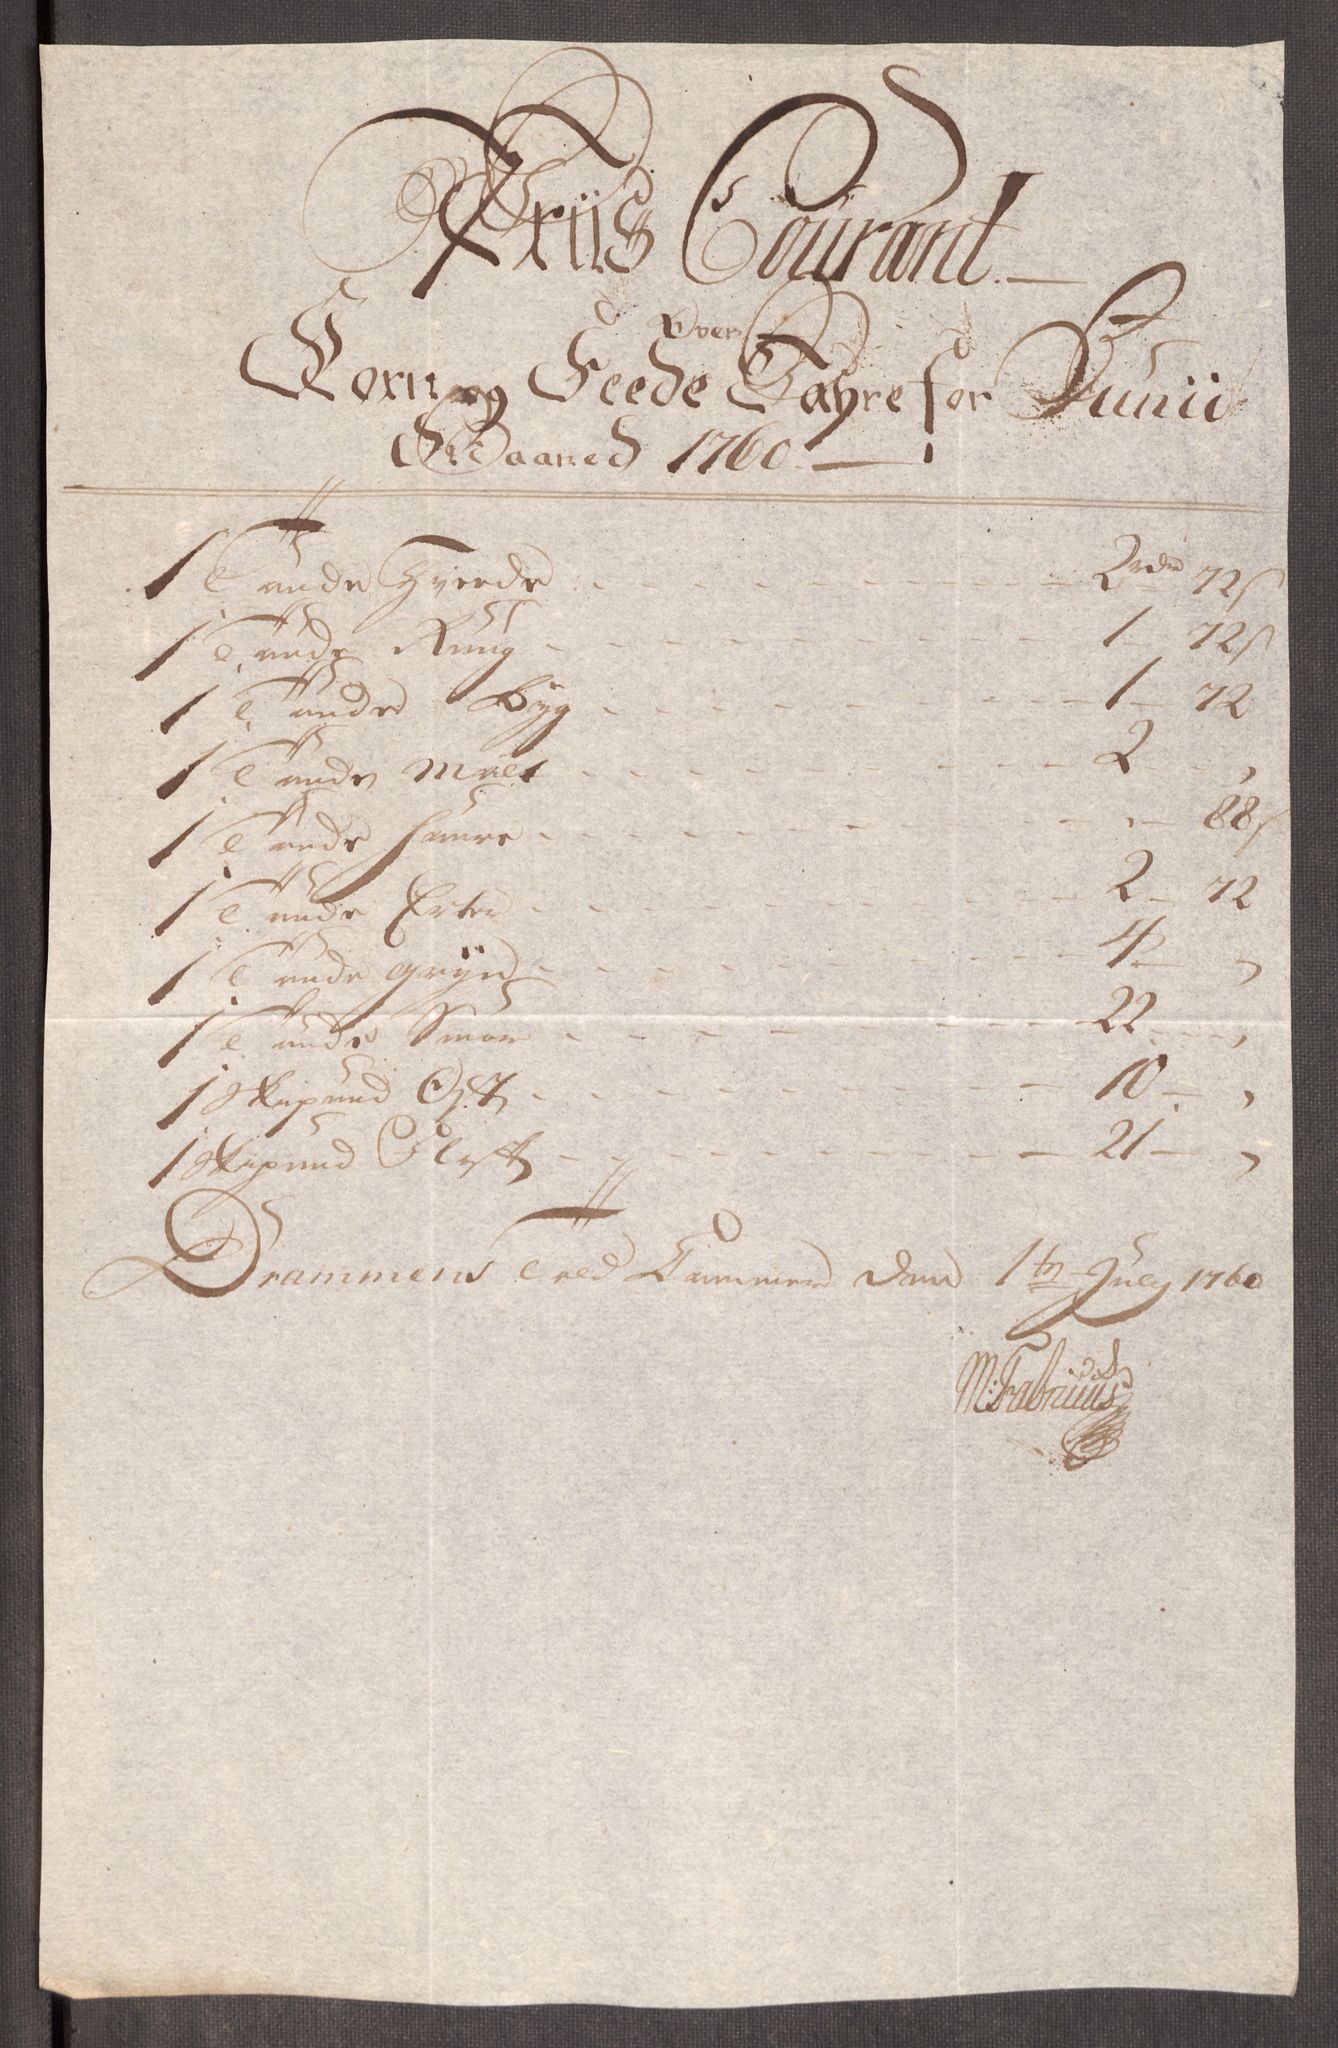 Priis Courant
Over
Korn og Feede Vahre for Junii
Maaned 1760
1 Tønde Hveede 2 rdr 72 s
1 Tønde Rüug 1 72 s
1 Tønde Byg 1 72
1 Tønde Malt 2 ,
1 Tønde Haure 88 s
1 Tønde Erter 2 72
1 Tønde Gryn 4 ,
1 Tønde Smør 22 ,
1 Skipund Ost 10 ,
1 Skipund 21 ,
Drammens Told Cammer den 1te July 1760
M: Fabricius